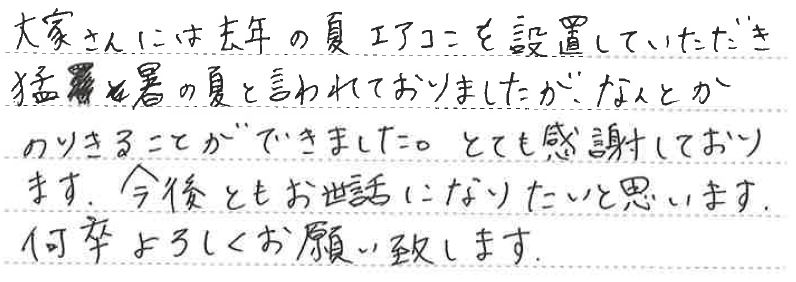 大家さんには去年の夏エアコンを設置していただき
猛暑の夏と言われておりましたが、なんとか
のりきることができました。とても感謝しており
ます。今後ともお世話になりたいと思います。
何卒よろしくお願い致します。